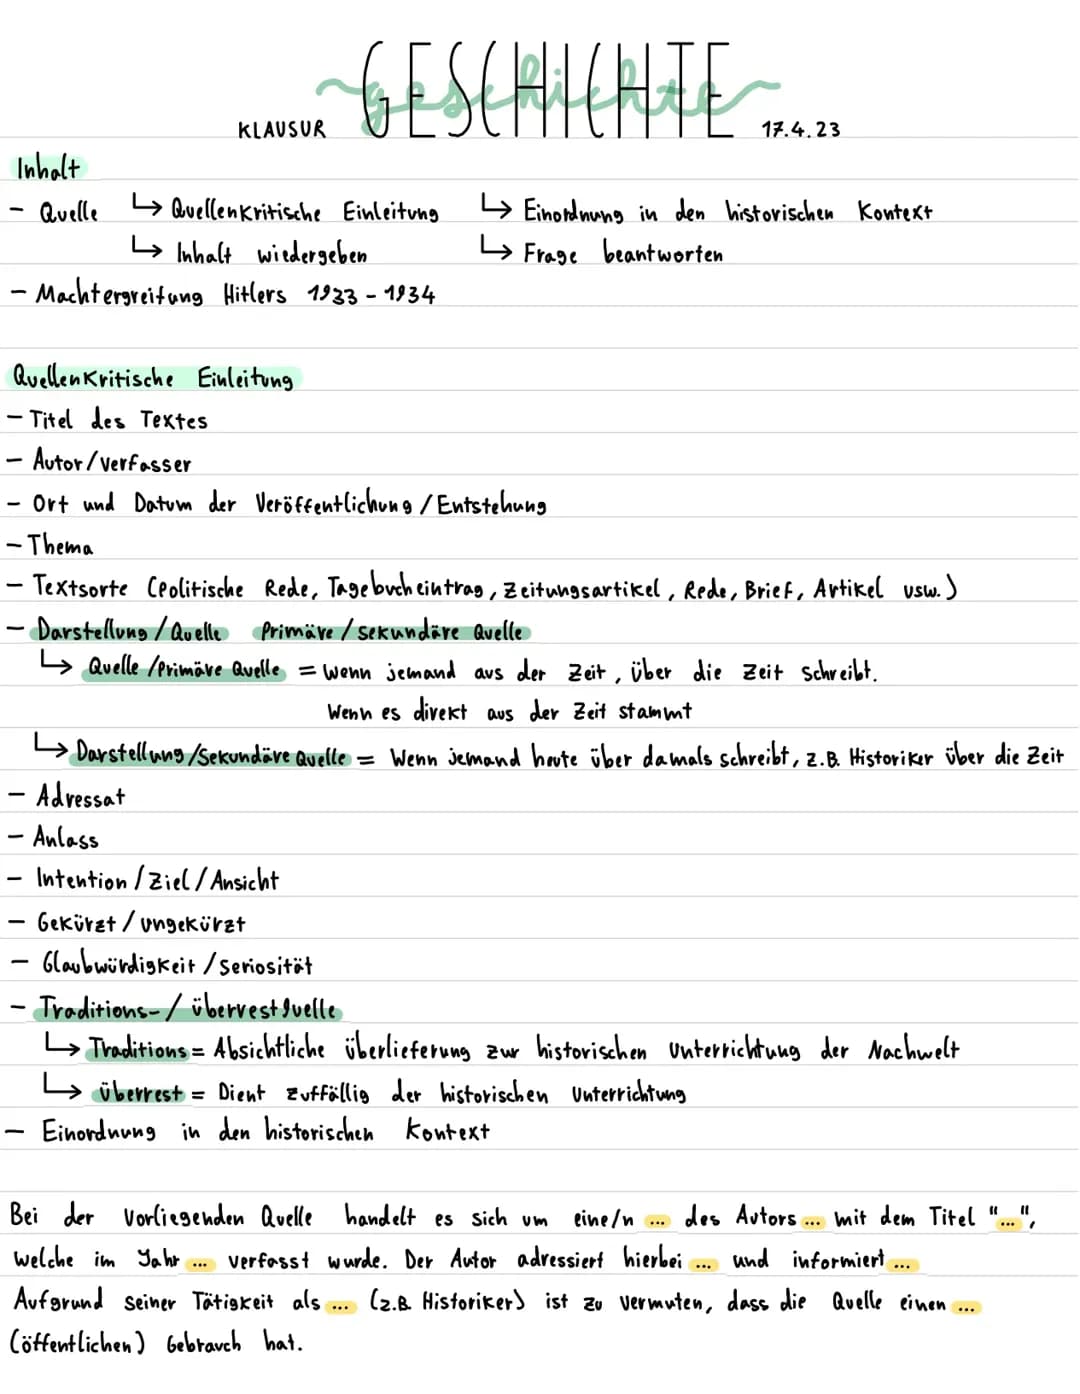 GESCHICHTE
geschichte
KLAUSUR 17.4.23
Inhalt
- Quelle ↳ Quellenkritische Einleitung ↳ Einordnung in den historischen Kontext
↳ Inhalt wiedergeben ↳ Frage beantworten
- Machtergreifung Hitlers 1933 - 1934
Quellenkritische Einleitung
- Titel des Textes
- Autor/Verfasser
- Ort und Datum der Veröffentlichung / Entstehung
- Thema
- Textsorte (Politische Rede, Tagebucheintrag, Zeitungsartikel, Rede, Brief, Artikel usw.)
- Darstellung / Quelle Primäre / sekundäre Quelle
↳ Quelle /Primäre Quelle = Wenn jemand aus der Zeit, über die Zeit schreibt.
Wenn es direkt aus der Zeit stammt
↳ Darstellung/Sekundäre Quelle = Wenn jemand heute über damals schreibt, z.B. Historiker über die Zeit
- Adressat
- Anlass
- Intention / Ziel / Ansicht
- Gekürzt / ungekürzt
- Glaubwürdigkeit / Seriosität
- Traditions- / überrestquelle
↳ Traditions = Absichtliche überlieferung zur historischen Unterrichtung der Nachwelt
↳ überrest = Dient zuffällig der historischen Unterrichtung
- Einordnung in den historischen Kontext
Bei der Vorliegenden Quelle handelt es sich um eine/n ... des Autors ... mit dem Titel "...",
welche im Jahr ... verfasst wurde. Der Autor adressiert hierbei ... und informiert ...
Aufgrund seiner Tätigkeit als ... (z.B. Historiker) ist zu vermuten, dass die Quelle einen ...
(öffentlichen) Gebrauch hat.